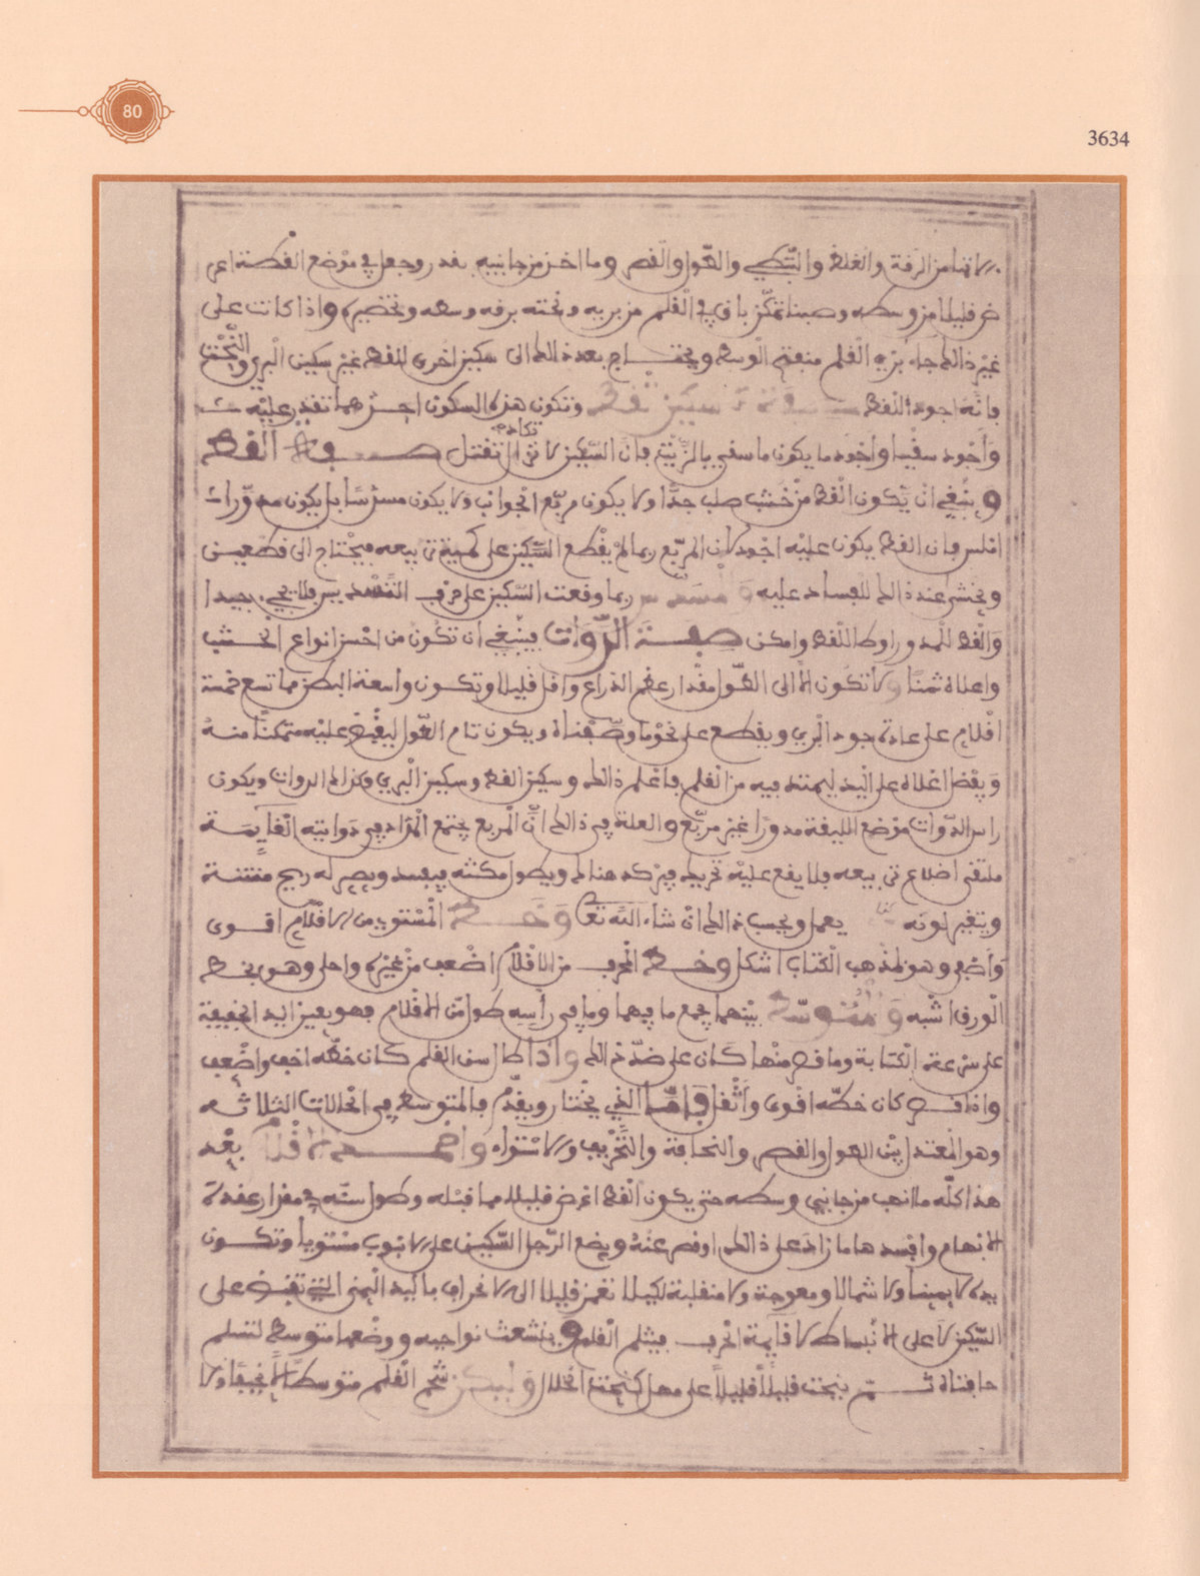 80
3634
من الرقة والغلظ والطول والقصر وما اخذ من جانبيه بقدر وجعل في موضع القطة اعر
ض قليلا من وسطه القلم من بريه ونحته برقه وسعه وتحضيره واذا كانت على
غير ذالك جاء بريه القلم الوسط ويحتاج بعد ذالك الى سكين اخرى للقط غير سكين البري والنحت
فانه اجود للقط سكين وتكون هذه السكون احد ما تقدر عليه
واجود سقيها واجود ما يكون ما سقي بالزيت فان السكين لا تكاد تفتل صفة القط
وينبغي ان يكون القط من خشب صلب جدا ولا يكون مربع الجوانب ولا يكون بل يكون مدورا
املس فان القط يكون عليه اجود لان المربع ربما لم يقطع السكين على تربيعه فيحتاج الى قطعيتين
ويخشى عند ذالك للفساد عليه ربما وقعت السكين على حرف فلا يجيء جيدا
والقط المدور اوطا للقط وامكن صفة الدوات فينبغي ان تكون من احسن انواع الخشب
واعلاه ثمنا ولا تكون الا الى الطول مقدار عظم الذراع واقل قليلا وتكون واسعة البطن مما تسع خمسة
اقلام على عادة جود البري ويقطع على نحو ما وصفناه ويكون تام الطول ليقبض عليه متمكنا منه
ويفضل اعلاه على اليد ليمتد فيه من القلم فاعلم ذالك وسكين القط وسكين البري وكذالك الدوات ويكون
راس الدوات موضع الليقة مدورا غير مربع والعلة في ذالك ان المربع يجتمع المداد في زوايته القايمة
ملتقى اضلاع تربيعه فلا يقع عليه تحريك فيركد هنالك ويطول مكثه فيفسد ويصير له ريح منتنة
ويتغير لونه يعمل ويحسب ذالك ان شاء الله تعا وخط المستوي من الاقلام اقوى
واضع وهو لمذهب الكتاب اشكل وخط المحرف من الاقلام اضعف من غيره واحلى وهو بخط
الورق اشبه والمتوسط بينهما يجمع ما فيهما وما في راسه طول من الاقلام فهو يعين اليد الخفيفة
على سرعة الكتابة وما قصر منها كان على ضد ذالك واذا طال سن القلم كان خطه اخف واضعف
واذا قصر كان خطه اقوى واثقل واما الذي يختار ويقدم فالمتوسط في الحالات الثلاثة
وهو المعتدل بين الطول والقصر والنحافة والتحريف والاستواء واحمد الاقلام بعد
هذا كله ما انهب من جانبي وسطه حتى يكون القط اعرض قليلا مما قبله وطول سنه في مقدار عقدة
الابهام وافسدها ما زاد على ذالك او قصر عنه ويضع الرجل السكين على الانبوب مستويا وتكون
يده لا يمينا ولا شمالا ومعوجة ولا منقلبة لكيلا تغمز قليلا الى الانحراف باليد اليمنى التي تقبض على
السكين لا على الانبساط لا قايمة الحرف فيثلم القلم وينشعث نواحيه ووضعها متوسط لتسلم
حافتاه ثم ينحت قليلا قليلا على مهل شحم القلم متوسطا لا نحيفا ولا